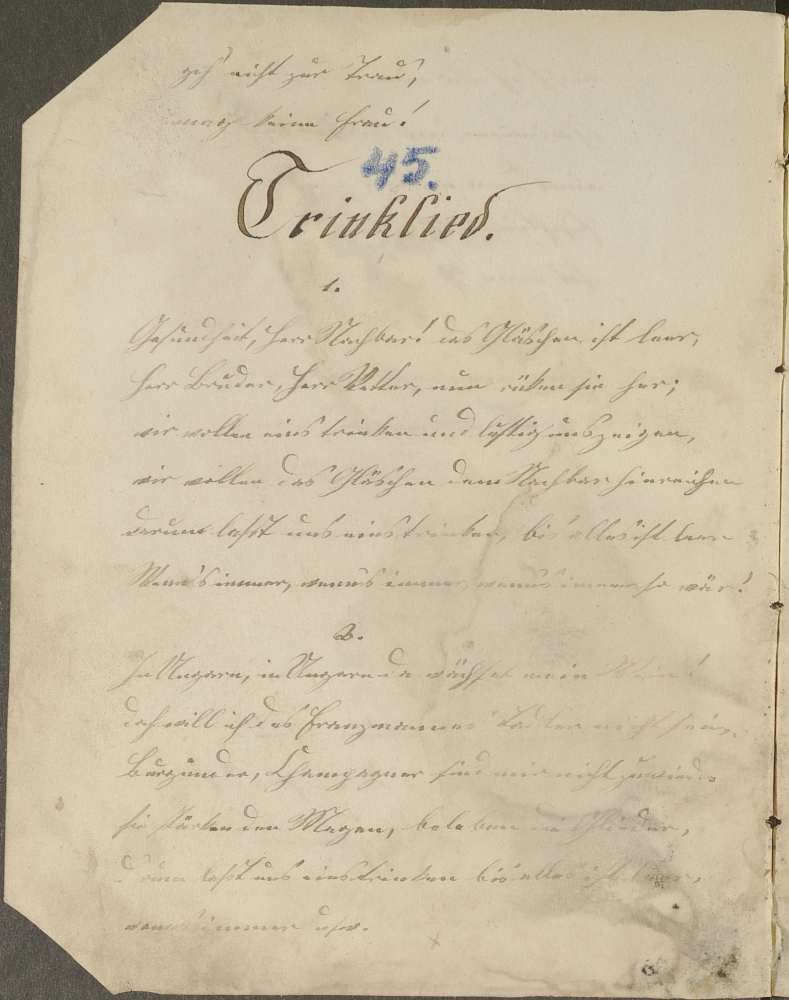 geh' nicht zur Trau',
mag keine Frau!
45.
Trinklied.
1.
Gesundheit, Herr Nachbar! das Gläschen ist leer,
Herr Bruder, Herr Vetter, nun rüken sie her;
wir wollen eins trinken und lustig uns zeigen,
wir wollen das Gläschen dem Nachbar hinreichen
darum laßt uns eins trinken, bis alles ist leer
Wenn's immer, wenns immer, wenns immer so wär'!
2.
In Ungarn, in Ungarn da wächset mein Wein!
doch will ich des Franzmannes Tadler nicht sein,
Burgunder, Champagner sind mir nicht zuwider
sie stärken den Magen, beleben die Glieder,
Drum laßt uns eins trinken bis alles ist leer,
wenns immer usw.